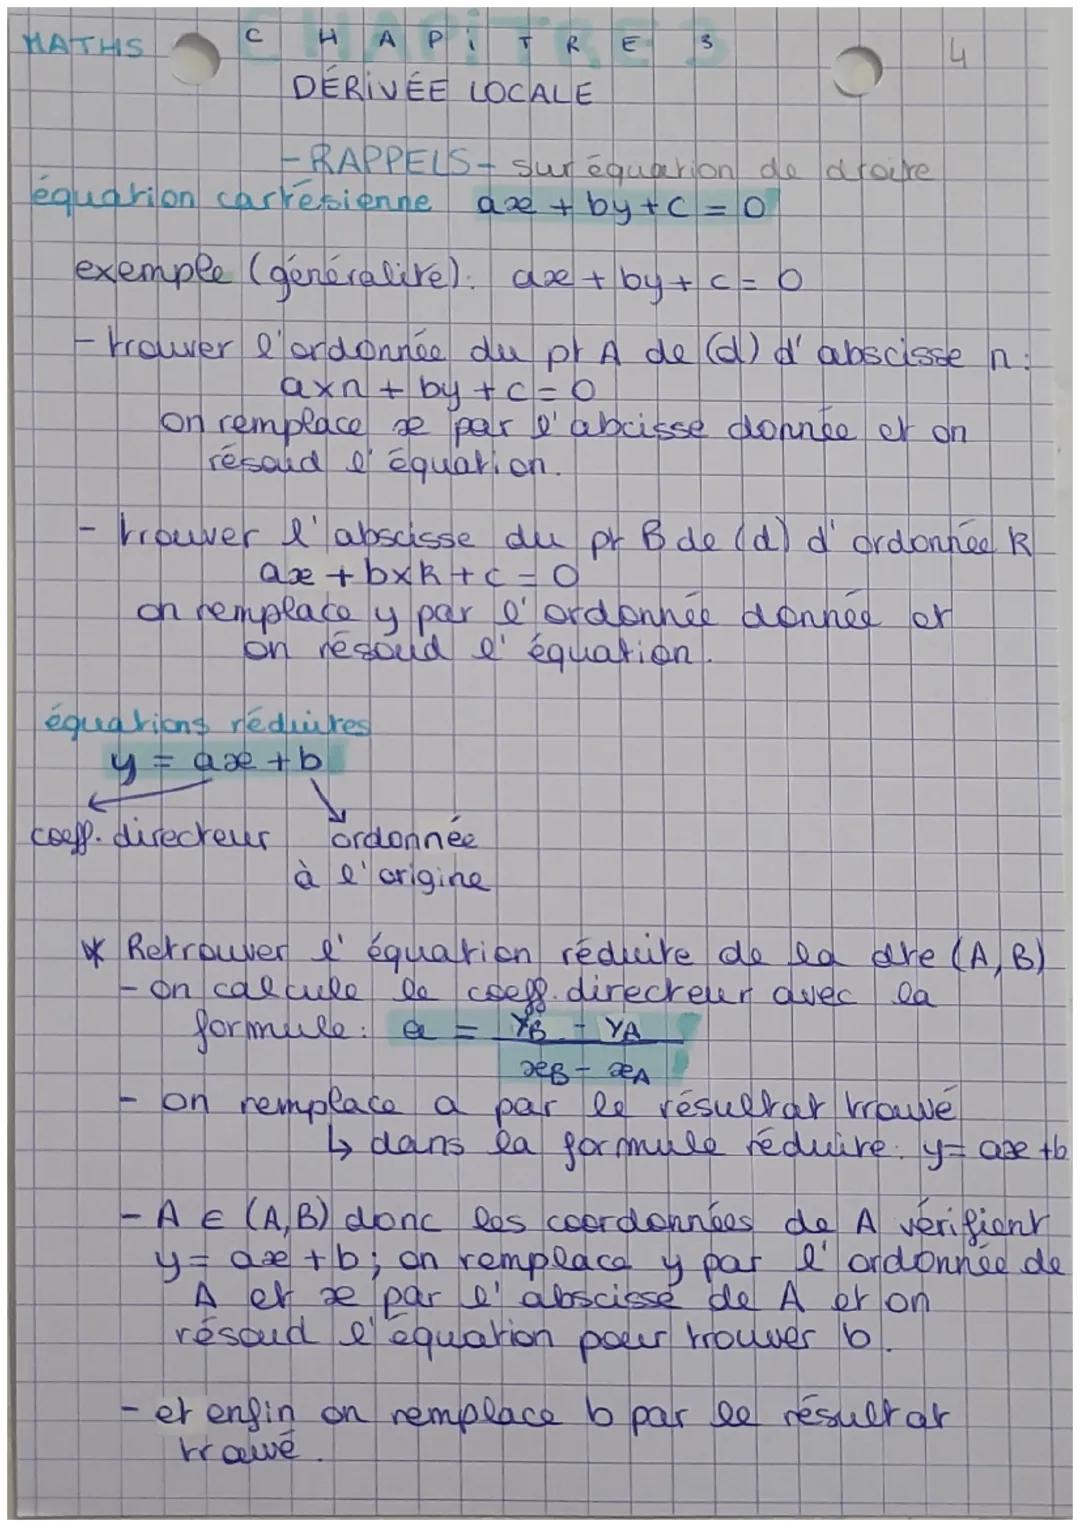 MATHS CHAPiTRE 3 4
DÉRiVÉE LOCALE
- RAPPELS - sur équation de droite
équation cartésienne ax + by + c = 0
exemple (généralité): ax + by + c = 0
- trouver l'ordonnée du pt A de (d) d'abscisse n:
axn + by + c = 0
on remplace x par l'abcisse donnée et on
résoud l'équation.
- trouver l'abscisse du pt B de (d) d'ordonnée k
ax + bxk + c = 0
on remplace y par l'ordonnée donnée et
on résoud l'équation.
équations réduites
y = ax + b
coeff. directeur ordonnée
à l'origine
* Retrouver l'équation réduite de la dte (A,B)
- on calcule le coeff. directeur avec la
formule: a = YB - YA
xB - xA
- on remplace a par le résultat trouvé
↳ dans la formule réduite: y= ax +b
- A ∈ (A,B) donc les coordonnées de A vérifient
y= ax + b; on remplace y par l'ordonnée de
A et x par l'abscisse de A et on
résoud l'équation pour trouver b.
- et enfin on remplace b par le résultat
trouvé.